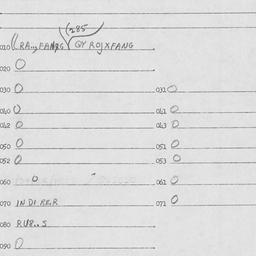 (285
010 GY ROJXFANG
020 O
030 O 031 O
040 O 041 O
042 O 043 O
050 O 051 O
052 O 053 O
060 O 061 O
070 INDIRER 071 O
080 RUB..S
090 O